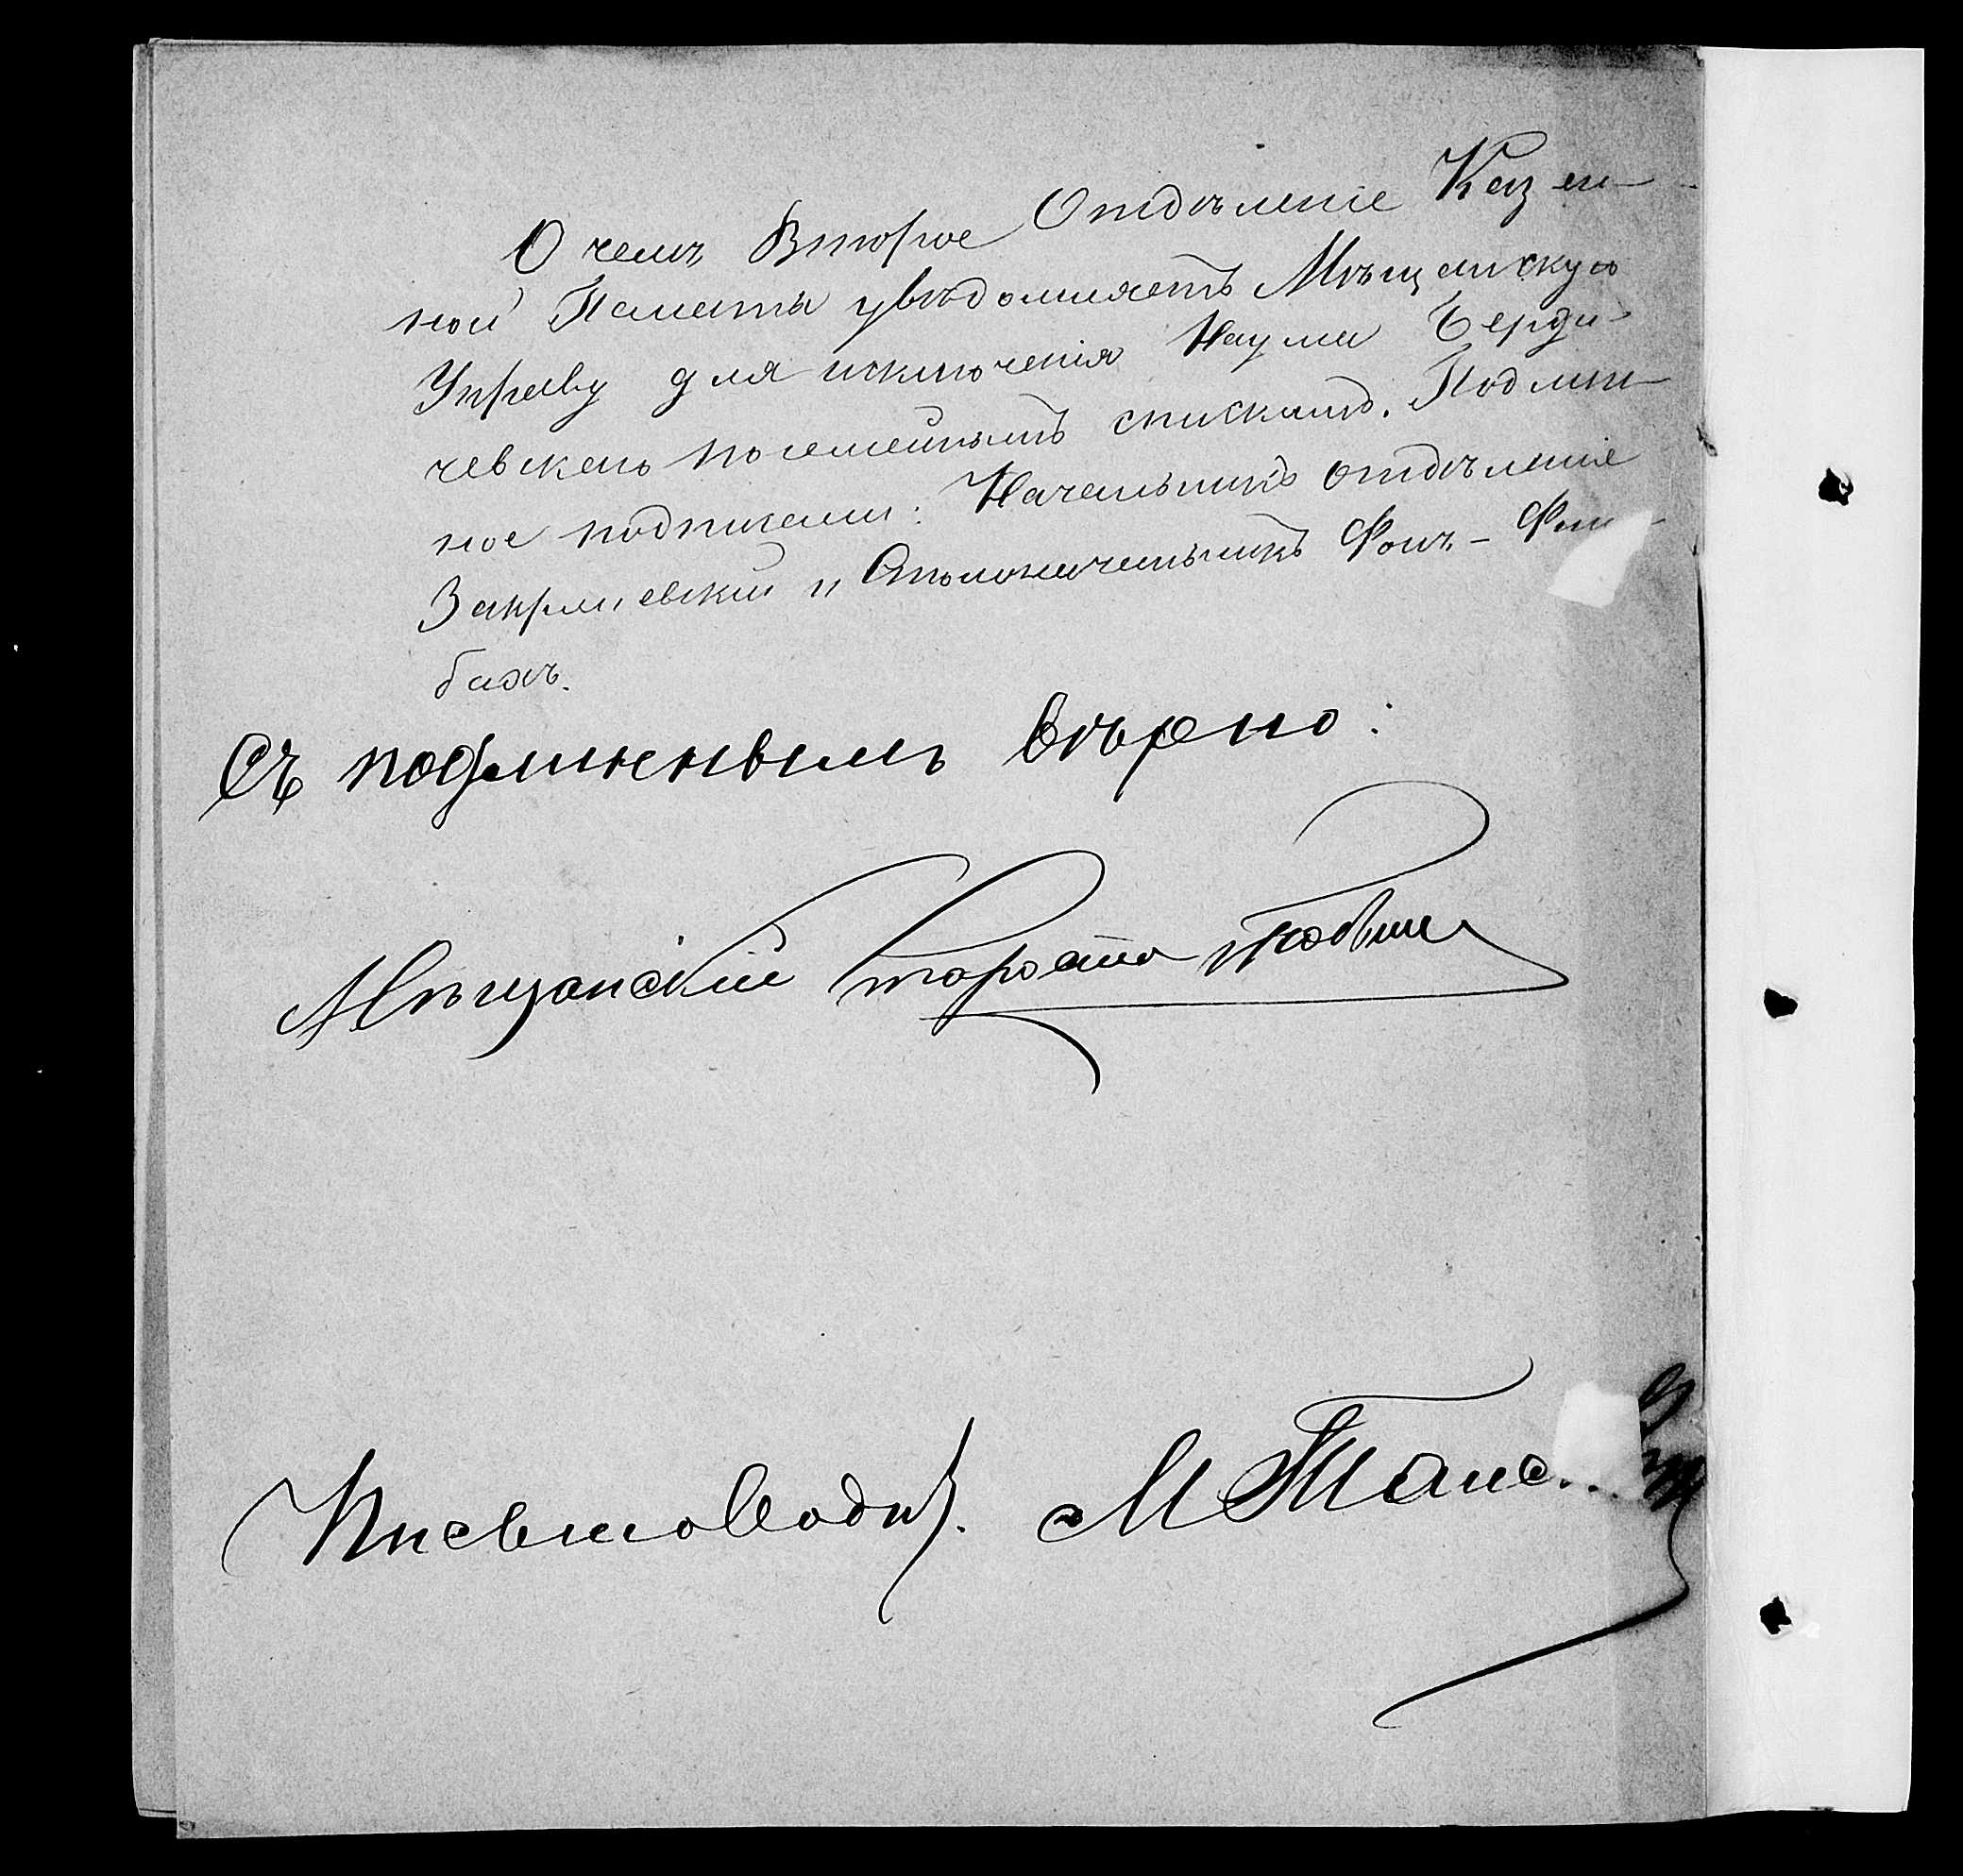 О чемъ Второе Отдѣленіе Казен-
ной Палаты увѣдомляетъ Мѣщанскую
Управу для исключенія Наума Берди-
чевскаго по семейнымъ спискамъ. Подлин-
ное подписали: Начальникъ отдѣленія
и Столоначальникъ Фонъ-
бахъ.
Съ подлиннымъ вѣрно:
Мѣщанскій Староста
Письмоводит. М